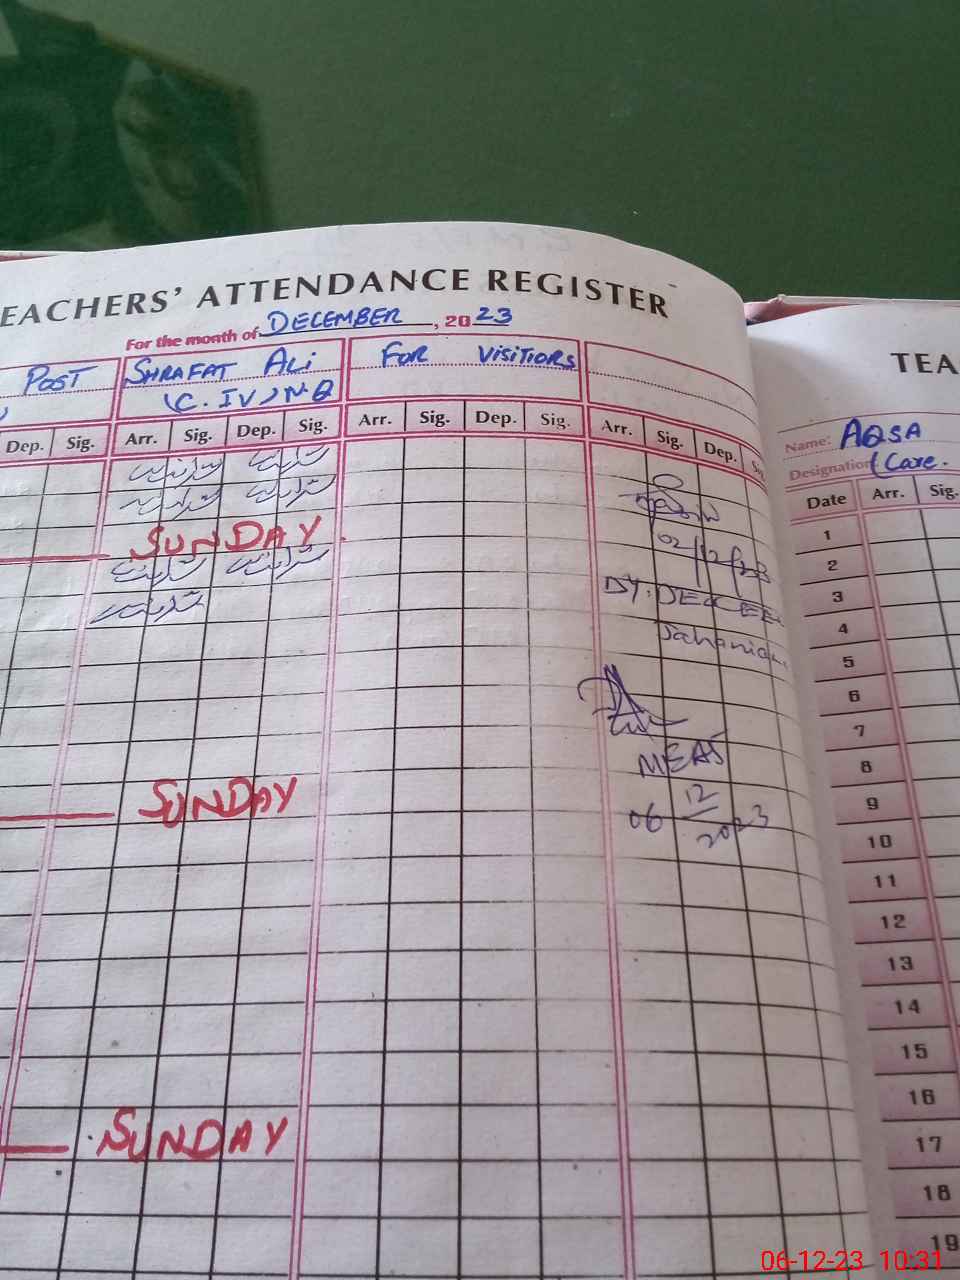 TEACHERS' ATTENDANCE REGISTER
For the month of DECEMBER, 2023
POST SHRAFAT ALI FOR VISITIORS
(C.IV) N.Q
Dep. Sig. Arr. Sig. Dep. Sig. Arr. Sig. Dep. Sig. Arr. Sig. Dep.
SUNDAY
02/12/23
DY: DEO
MEAS
06 12
2023
SUNDAY
SUNDAY
TEA
Name: AQSA
Designation (Care.
Date Arr. Sig.
1
2
3
4
5
6
7
8
9
10
11
12
13
14
15
16
17
18
19
06-12-23 10:31